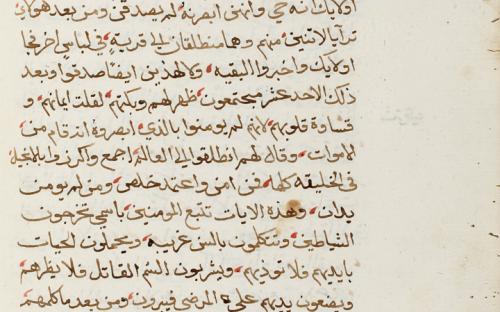 اولايك انه حي وانهن ابصرنه لم يصدقن ومن بعد هولاي
ترايا لاثنين منهم وهما منطلقان الي قرية في لباس اخر فجا
اولايك واخبروا البقيه ولا لهذين ايضا صدقوا وبعد
ذلك الاحد عشر مجتمعون ظهر لهم وبكتهم لقلت ايمانهم و
قساوة قلوبهم لانهم لم يومنوا بالذي ابصروه انه قام من
الاموات وقال لهم انطلقوا الي العالم اجمع واكرزوا بالانجيل
في الخليقه كلها فمن امن واعتمد خلص ومن لم يومن
يدان وهذه الايات تتبع المومنين باسمي تخرجون
الشياطين وتتكلمون بالسن غريبه ويحملون الحيات
بايديهم فلا توذيهم ويشربون السم القاتل فلا يظرهم
ويضعون يديهم علي المرضي فيبرون ومن بعد ما كلمهم